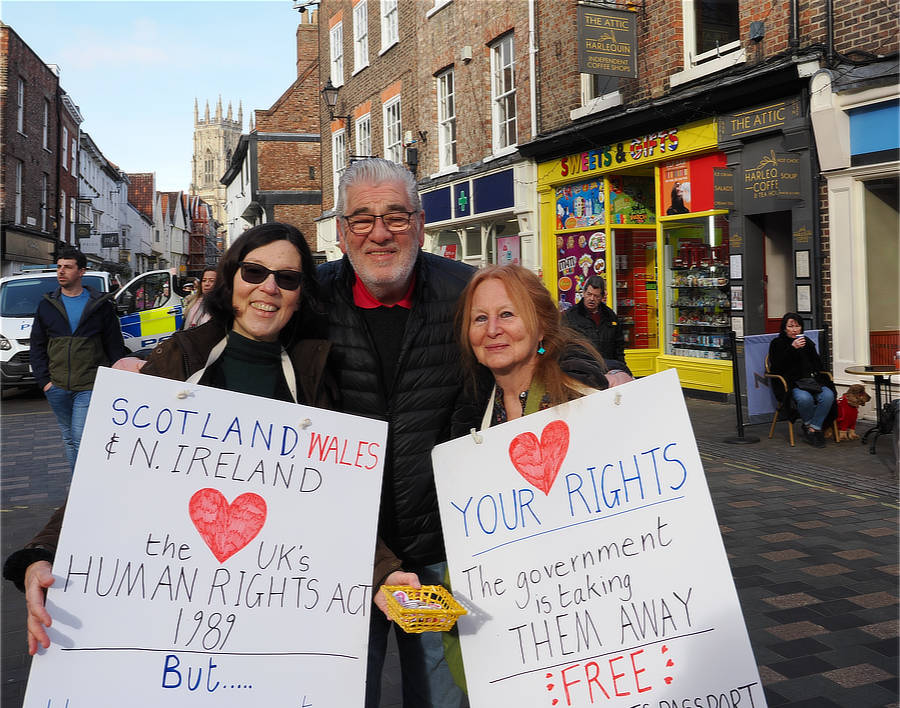 THE ATTIC
HARLEQUIN
INDEPENDENT
COFFEE SHOPS
SWEETS & GIFTS
THE ATTIC
HARLEQUIN
COFFEE
& TEA
SALADS
SOUP
SCOTLAND, WALES
& N. IRELAND
the UK's
HUMAN RIGHTS ACT
1989
BUT.....
YOUR RIGHTS
The government
is taking
THEM AWAY
FREE
PASSPORT